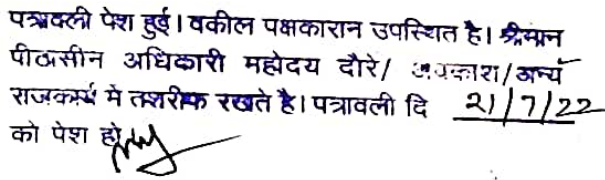 पत्रावली पेश हुई। वकील पक्षकारान उपस्थित है। श्रीमान
पीठासीन अधिकारी महोदय दौरे/ अवकाश/अन्य
राजकार्य मे तशरीफ रखते है। पत्रावली दि 21/7/22
को पेश हो